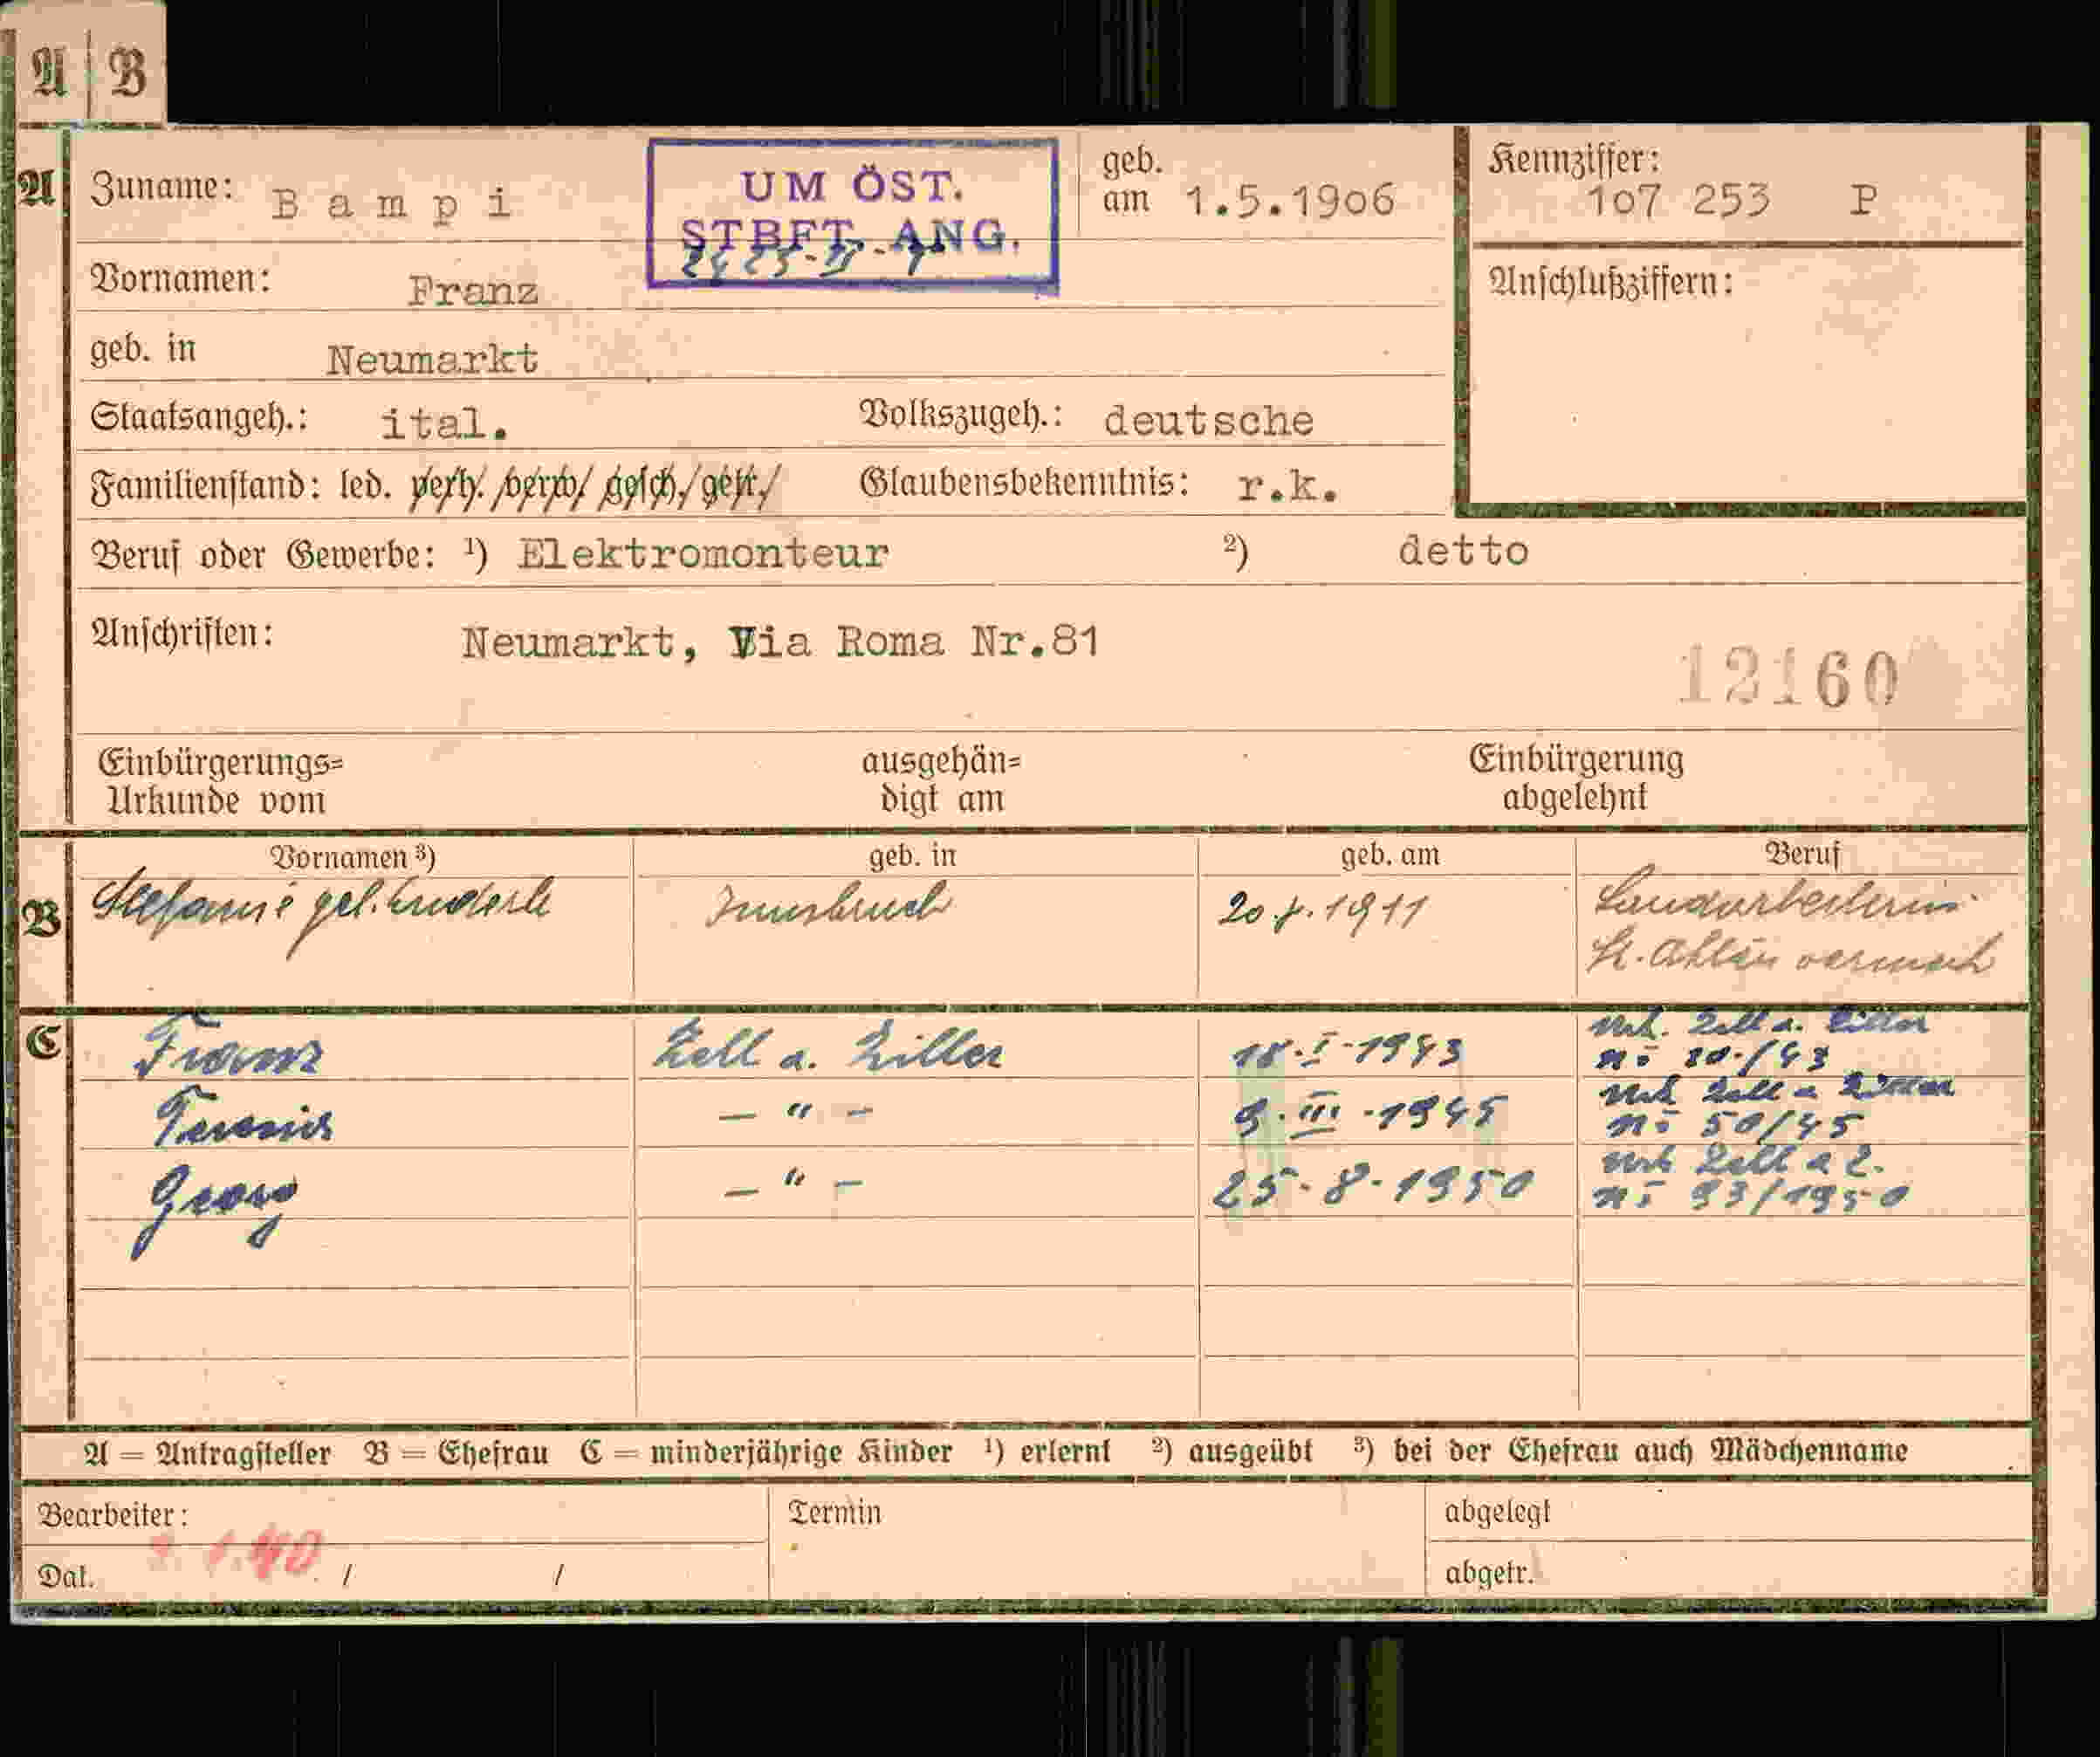 A | B
A Zuname: Bampi
UM ÖST. STBFT. ANG.
geb. am 1.5.1906
Kennziffer: 107 253 P
Vornamen: Franz
Anschlußziffern:
geb. in Neumarkt
Staatsangeh.: ital. Volkszugeh.: deutsche
Familienstand: led. verh. verw. gesch. getr. Glaubensbekenntnis: r.k.
Beruf oder Gewerbe: ¹) Elektromonteur ²) detto
Anschriften: Neumarkt, Via Roma Nr.81
12160
Einbürgerungs= Urkunde vom
ausgehän= digt am
Einbürgerung abgelehnt
Vornamen ³) geb. in geb. am Beruf
B Stefanie geb. Innsbruck 1911 Landarbeiterin
C Franz Zell a. Ziller 18.I.1943 Zell a. Ziller
/43
— " — 9.III.1945 Zell a Ziller
50/45
Georg — " — 25.8.1950 Zell a Z.
93/1950
A = Antragsteller B = Ehefrau C = minderjährige Kinder ¹) erlernt ²) ausgeübt ³) bei der Ehefrau auch Mädchenname
Bearbeiter: Termin abgelegt
Dat. / / abgetr.